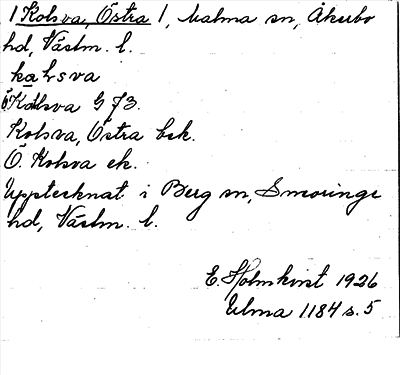 / Kolsva, Östra /, Malma sn, Åkerbo
hd, Västm. l.
kaLsva
Ö Kålsva G 73.
Kolsva, Östra bsk.
Ö. Kolsva ek.
Upptecknat i Berg sn, Snevringe
hd, Västm. l.
E. Holmkvist 1926
Ulma 1184 s. 5